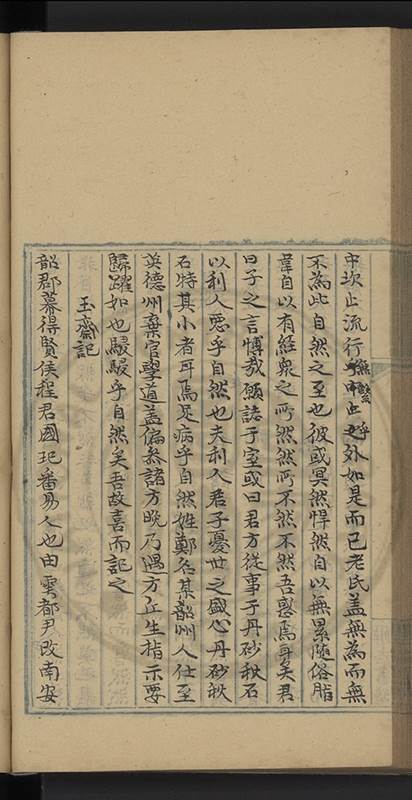 中坎止流行無繫乎中止也外如是而已老氏蓋無為而無
不為此自然之至也彼或冥然悍然自以無累隨俗脂
韋自以有經衆之所然然所不然不然吾惑焉耳矣君
曰子之言博哉願諸子室或曰君方從事于丹砂秋石
以利人惡乎自然也夫利人君子憂世之盛心丹砂秋
石特其小者耳焉足病乎自然姓鄭名某韶州人仕至
英德州棄官學道蓋徧參諸方晚乃遇方丘生指示要
歸躍如也駸駸乎自然矣吾故喜而記之
玉齋記
韶郡幕得賢侯程君國玘番昜人也由雩都尹改南安